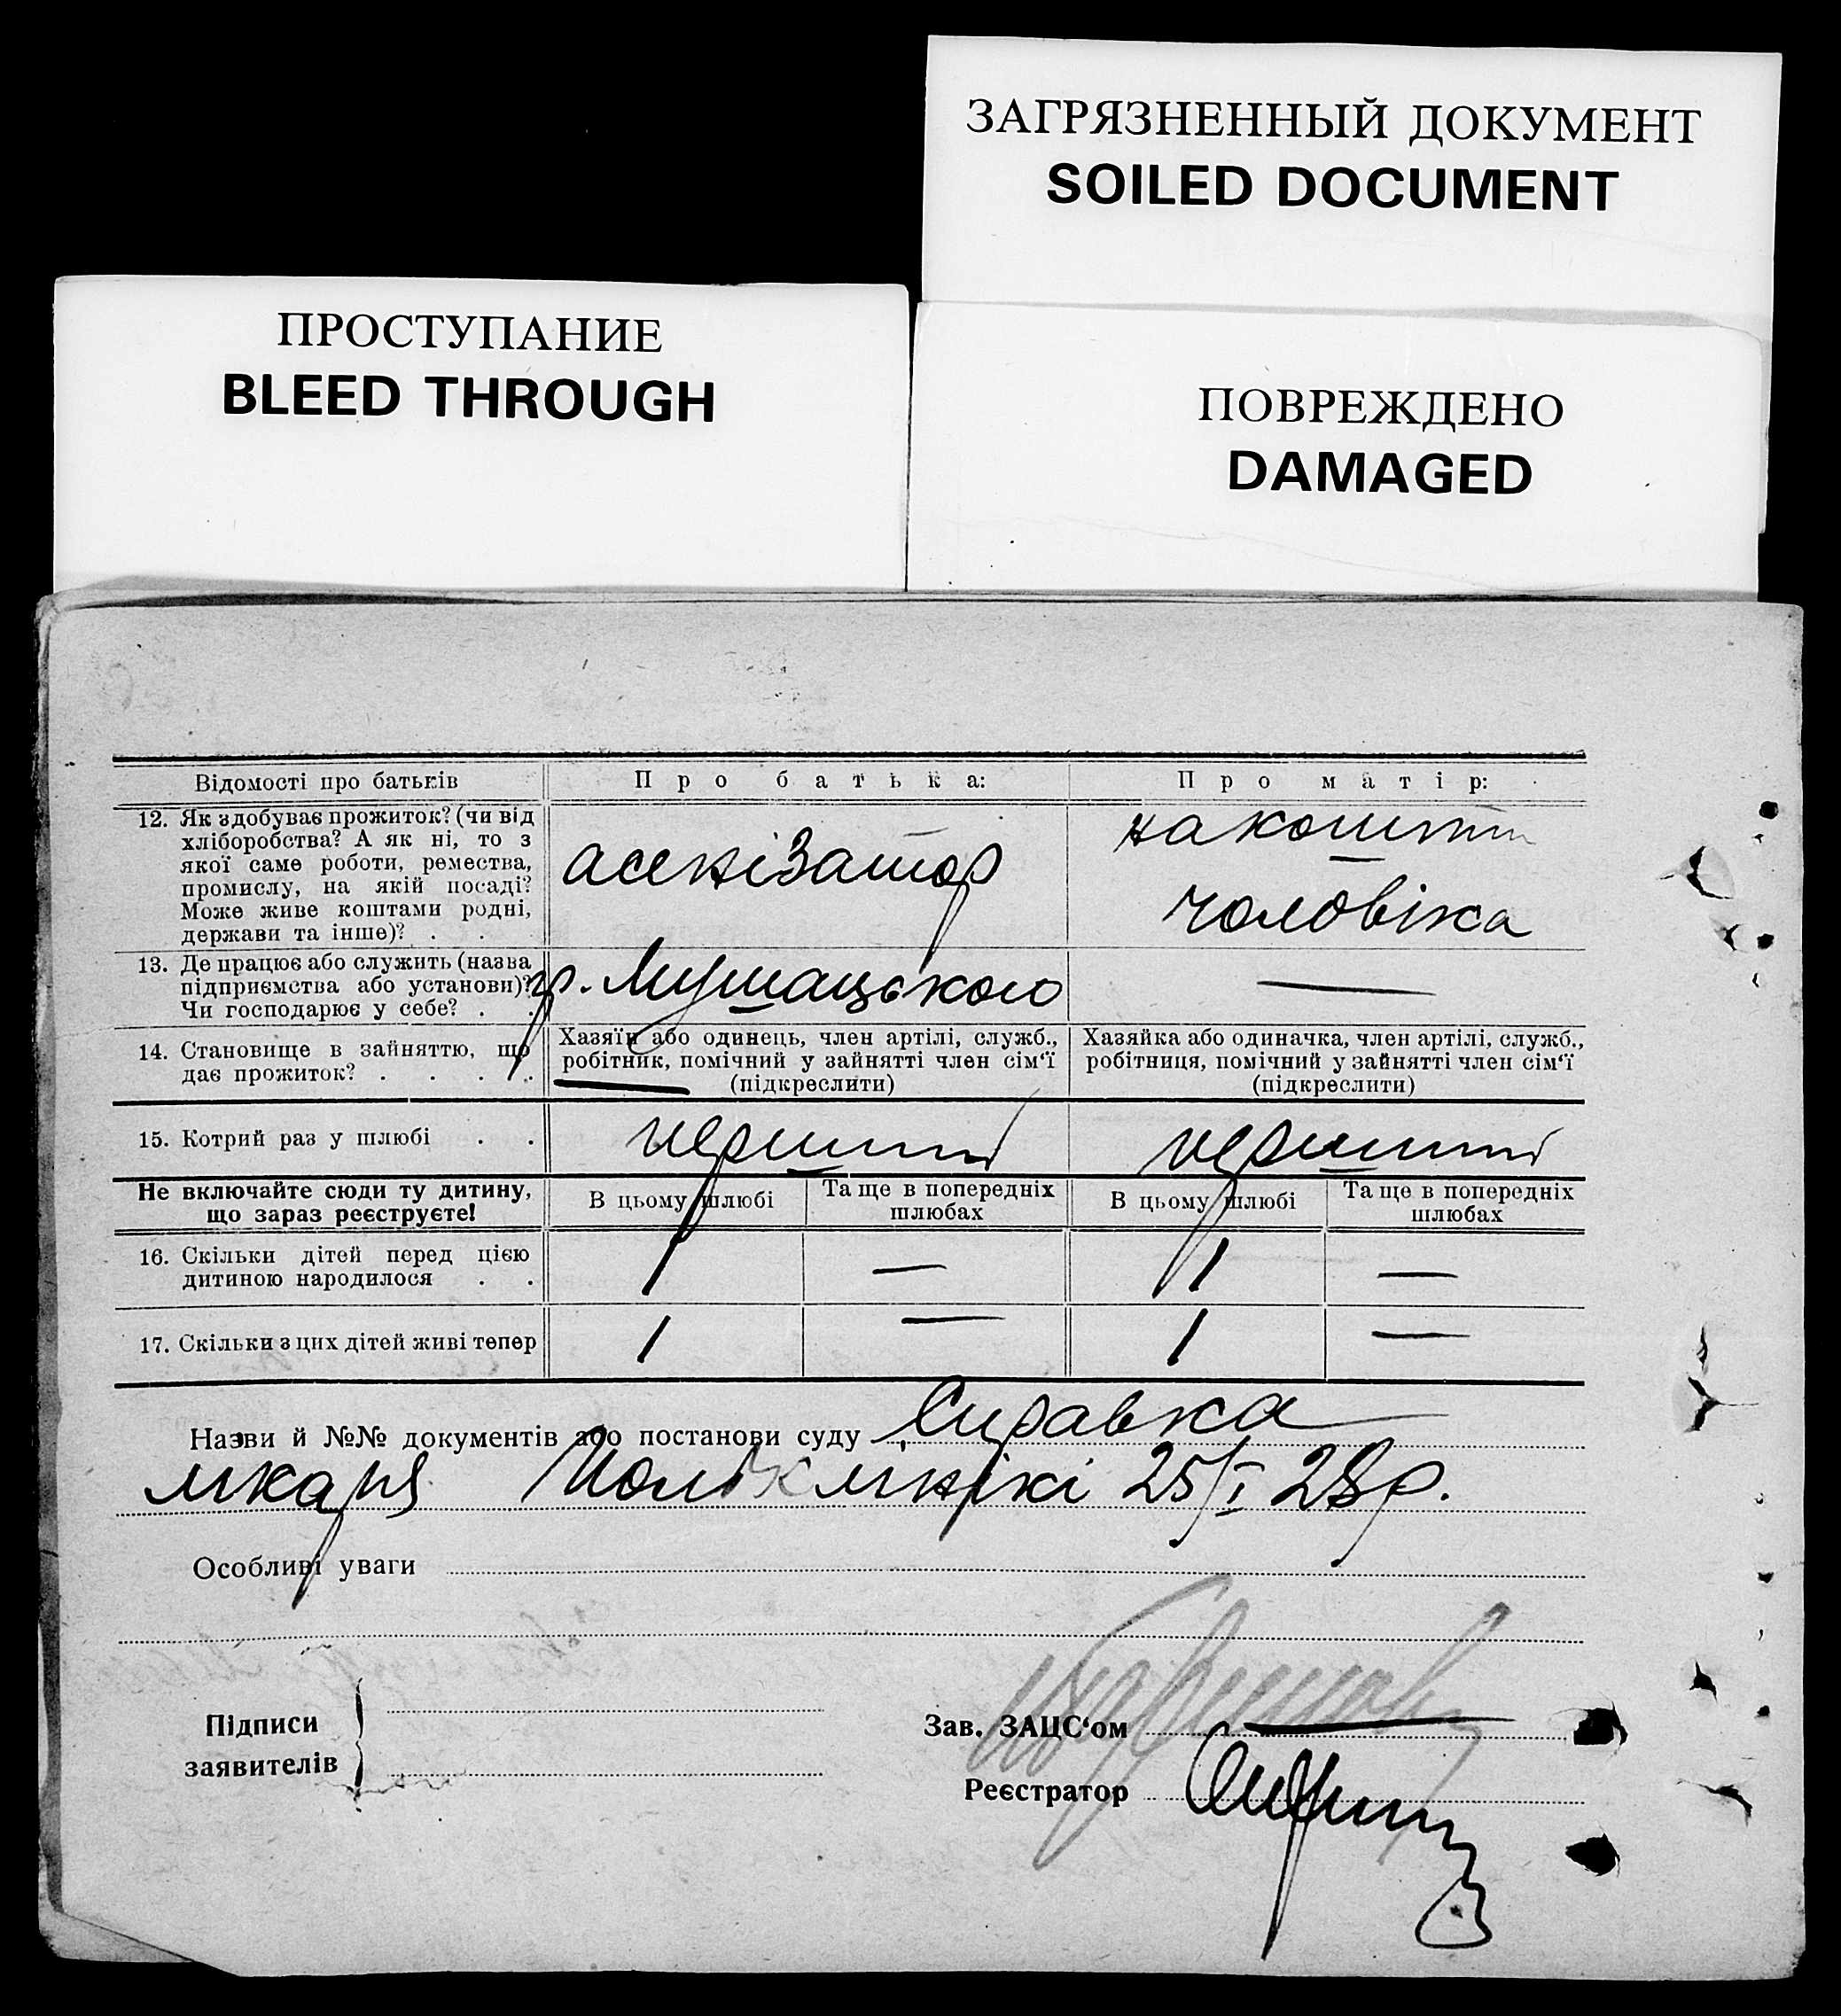 ЗАГРЯЗНЕННЫЙ ДОКУМЕНТ
SOILED DOCUMENT
ПРОСТУПАНИЕ
BLEED THROUGH
ПОВРЕЖДЕНО
DAMAGED
Відомості про батьків
Про батька:
Про матір:
12. Як здобуває прожиток? (чи від
хліборобства? А як ні, то з
якої саме роботи, ремества,
промислу, на якій посаді?
Може живе коштами родні,
держави та інше)? . .
асенізатор
на кошти
чоловіка
13. Де працює або служить (назва
підприємства або установи)?
Чи господарює у себе? . .
гр. Мушацького
—
14. Становище в зайняттю, що
дає прожиток? . . . .
Хазяїн або одинець, член артілі, служб.,
робітник, помічний у зайнятті член сім‘ї
(підкреслити)
Хазяйка або одиначка, член артілі, служб.,
робітниця, помічний у зайнятті член сім‘ї
(підкреслити)
15. Котрий раз у шлюбі . .
перший
перший
Не включайте сюди ту дитину,
що зараз реєструєте!
В цьому шлюбі
Та ще в попередніх
шлюбах
В цьому шлюбі
Та ще в попередніх
шлюбах
16. Скільки дітей перед цією
дитиною народилося . .
1 — 1 —
17. Скільки з цих дітей живі тепер
1 — 1 —
Назви й №№ документів або постанови суду Справка
лікаря Поліклініки 25/I 28р.
Особливі уваги
Підписи
заявителів
Зав. ЗАЦС‘ом
Реєстратор